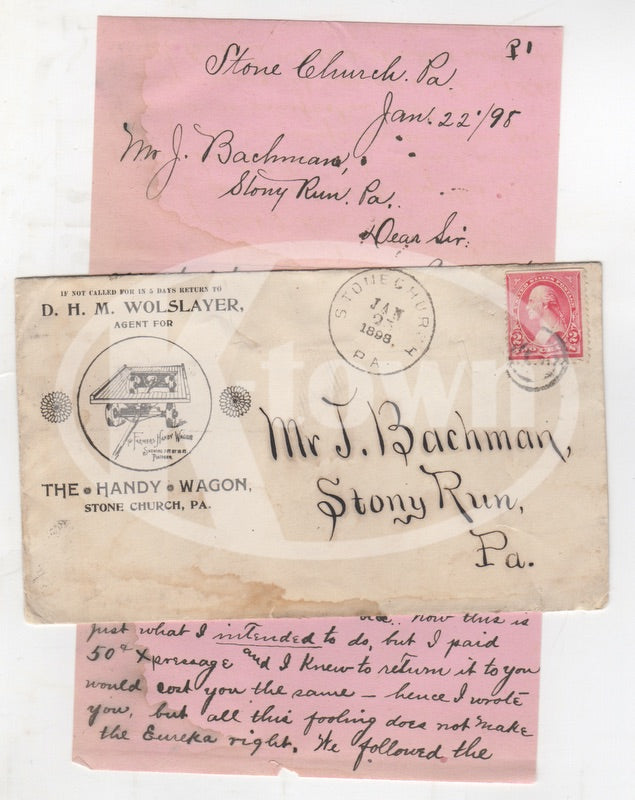 P1
Stone Church. Pa.
Jan. 22'/98
Mr J. Bachman,
Stony Run. Pa.
Dear Sir:
IF NOT CALLED FOR IN 5 DAYS RETURN TO
D. H. M. WOLSLAYER,
AGENT FOR
FARMERS HANDY WAGON
THE HANDY WAGON,
STONE CHURCH, PA.
STONECHURCH
JAN
1898
PA.
Ktown
Mr J. Bachman,
Stony Run,
Pa.
now this is
just what I intended to do, but I paid
50¢ Xpressage and I knew to return it to you
would cost you the same — hence I wrote
you, but all this fooling does not make
the Eureka right. We followed the